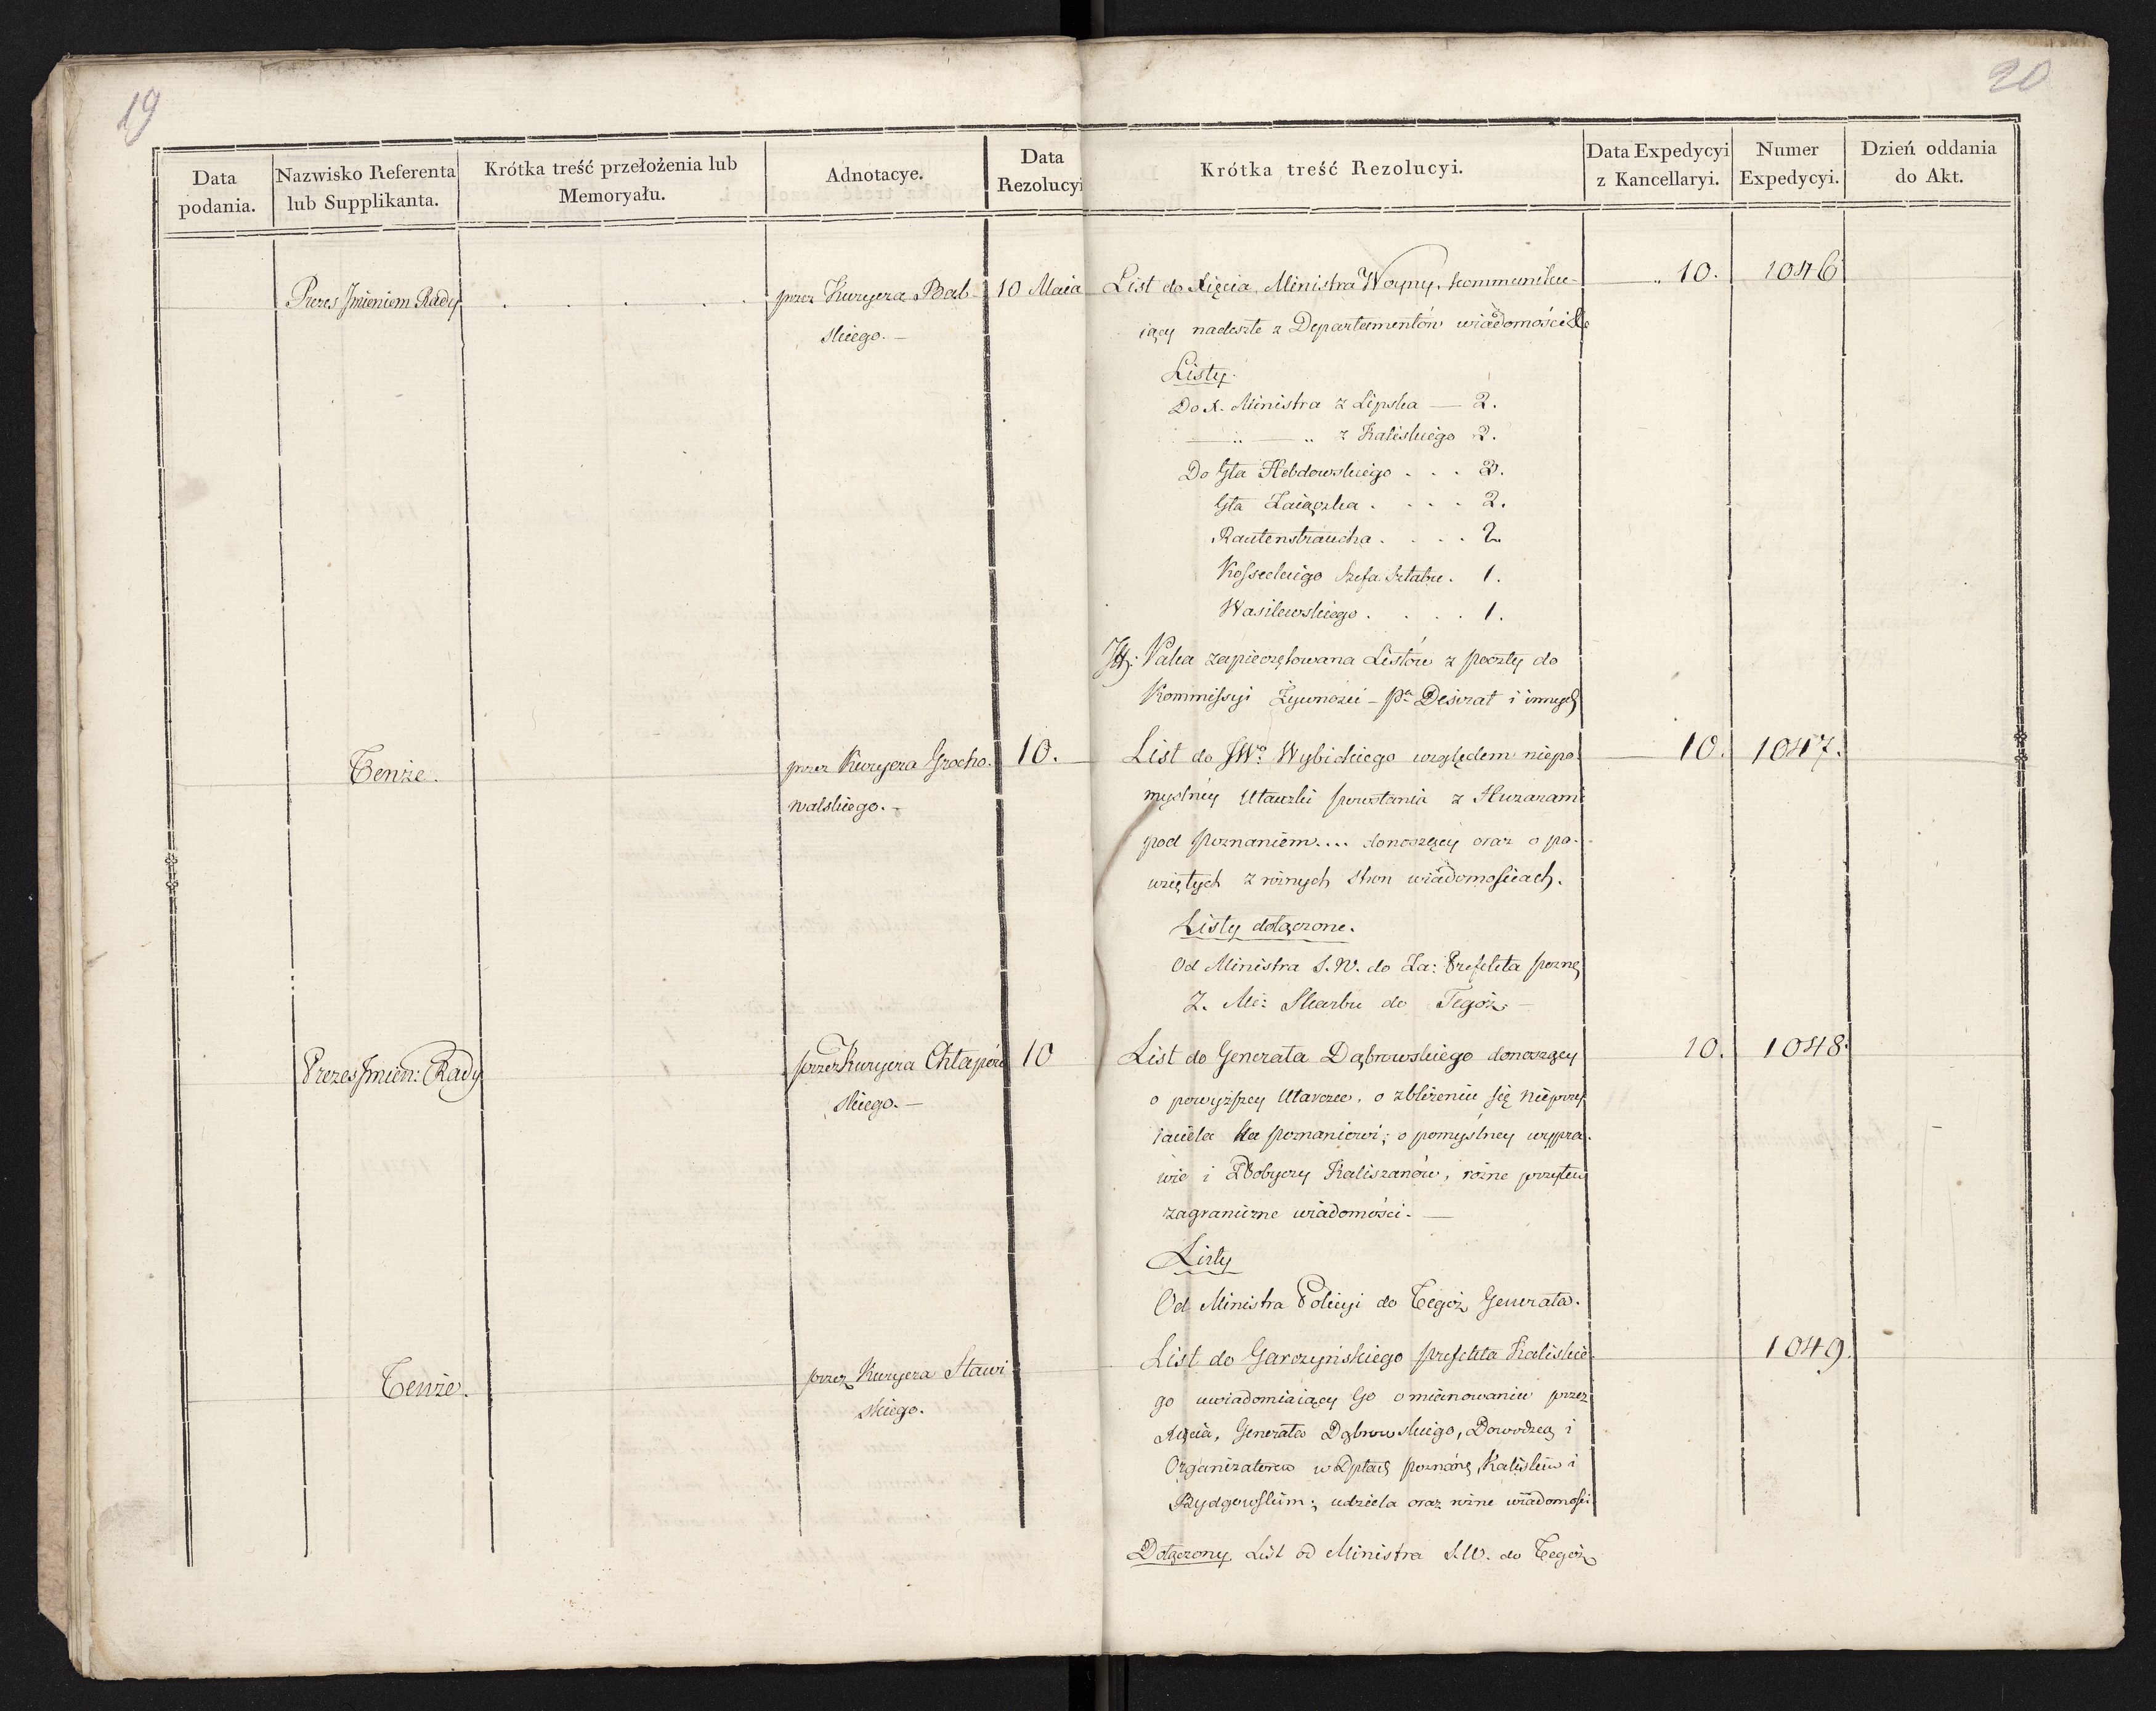 19
20
Data podania.
Nazwisko Referenta lub Supplikanta.
Krótka treść przełożenia lub Memoryału.
Adnotacye.
Data Rezolucyi
Krótka treść Rezolucyi.
Data Expedycyi z Kancellaryi.
Numer Expedycyi.
Dzień oddania do Akt.
Prezes Imieniem Rady
przez Kuryera Bab-
skiego. —
10 Maia
List do Xięcia Ministra Woyny, kommuniku-
iący nadeszłe z Departamentów wiadomości &c
10.
1046
Listy.
Do X. Ministra z Lipska — 2.
— „ — „ z Kaliskiego 2.
Do Gła Hebdowskiego . . . 3.
Gła Zaiączka . . . . 2.
Rautenstraucha . . . . 2.
Kosseckiego Szefa Sztabu . 1.
Wasilewskiego . . . . 1.
Paka zapieczętowana Listów z poczty do
Kommissyi Żywności — Pa Desirat i innych
Tenże.
przez Kuryera Grocho-
walskiego. —
10.
List do JWo Wybickiego względem niepo-
myślney Utarczki powstania z Huzarami
pod Poznaniem.... donoszący oraz o po-
wziętych z różnych stron wiadomościach.
10.
1047.
Listy dołączone.
Od Ministra S. W. do Za: Prefekta pozng
Z. Mi: Skarbu do Tegoż —
Prezes Imien: Rady
przez Kuryera Chłapow
skiego. —
10
List do Generała Dąbrowskiego donoszący
o powyższey Utarczce, o zbliżeniu się nieprzy
iaciela ku Poznaniowi; o pomyślney wypra-
wie i Zdobyczy Kaliszanów, różne przytem
zagraniczne wiadomości. —
10.
1048.
Listy
Od Ministra Policyi do Tegoż Generała.
Tenże.
przez Kuryera Stawi
skiego.
List do Garczyńskiego prefekta Kaliskie-
go uwiadomiaiący Go o mianowaniu przez
Xięcia, Generała Dąbrowskiego, Dowódzcą i
Organizatorem w Dptach poznańs, Kaliskim i
Bydgowskim; udziela oraz różne wiadomości
1049.
Dołączony List od Ministra S.W. do Tegoż